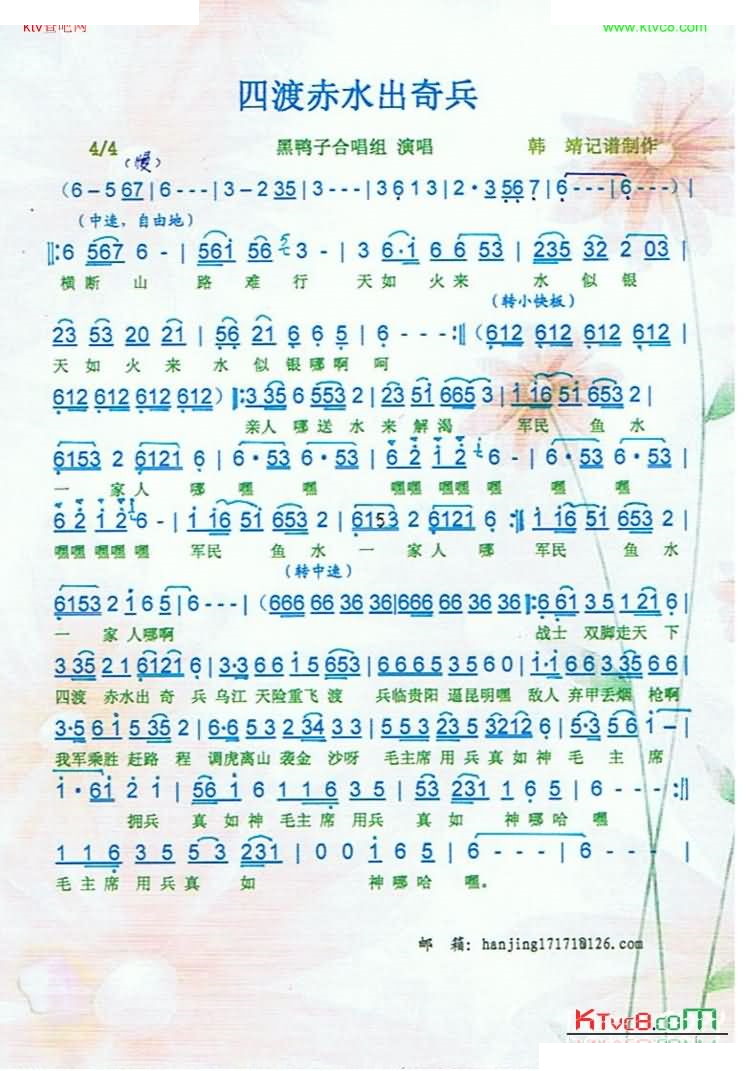 Ktv查吧网 www.KtvC8.com
四渡赤水出奇兵
4/4 (慢) 黑鸭子合唱组 演唱 韩 靖记谱制作
(6–567|6---|3–235|3---|3 6 1 3|2·3567|6---|6---)|
(中速，自由地)
‖:6 567 6 -|561 56 3 -|3 6·1 6 6 53|235 32 2 03|
横断 山 路 难 行 天如 火来 水 似 银
(转小快板)
23 53 20 21|56 21 6 6 5|6 - - -:‖(612 612 612 612|
天 如 火 来 水 似 银哪啊 呵
612 612 612 612)‖:3 35 6 553 2|23 51 665 3|1 16 51 653 2|
亲人 哪 送 水 来 解渴 军民 鱼 水
6153 2 6121 6|6·53 6·53|6 2 1 2 6 -|6·53 6·53|
一 家 人 哪 嘿 嘿 嘿嘿 嘿嘿 嘿 嘿
6 2 1 2 6 -|1 16 51 653 2|6153 2 6121 6:‖1 16 51 653 2|
嘿嘿 嘿嘿 嘿 军民 鱼 水 一 家 人 哪 军民 鱼 水
(转中速)
6153 2 1 6 5|6---|(666 66 36 36|666 66 36 36|‖:6 61 3 5 1 5 6|
一 家 人哪啊 战士 双脚走天 下
3 35 2 1 6121 6|3·3 6 6 1 5 653|6 6 6 5 3 5 6 0|1·1 6 6 3 35 6 6|
四渡 赤水出 奇 兵 乌江 天险重飞 渡 兵临贵阳 逼昆明嘿 敌人 弃甲丢烟 枪啊
3·5 6 1 5 35 2|6·6 5 3 2 34 3 3|5 5 3 2 3 5 3212 6|5·3 5 6 1 -|
我军乘胜 赶路 程 调虎离山 袭金 沙呀 毛主席 用 兵 真如 神 毛 主 席
1·61 2 1|56 1 6 6 6 1 6|3 5 53 231|1 6 5|6 - - -:‖
拥兵 真 如神 毛主席 用兵 真 如 神哪哈 嘿
1 1 6 3 5 5 3 231|0 0 1 6 5|6 - - -|6 - - -‖
毛主席 用兵真 如 神哪哈 嘿。
邮 箱：hanjing171710126.com
KTvc8.com